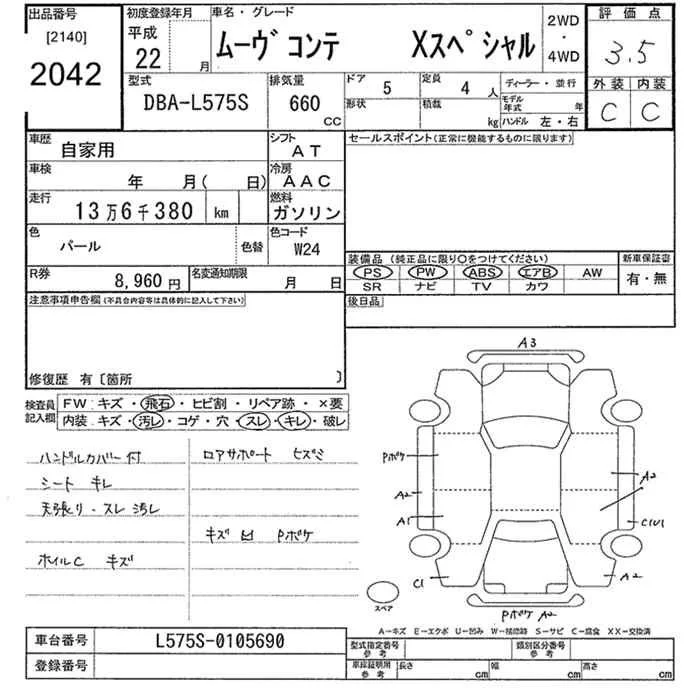 出品番号
[2140]
2042
初度登録年月
平成
22 月
車名・グレード
ムーヴ コンテ Xスペシャル
2WD
・
4WD
評価点
3.5
外装 内装
C C
型式
DBA-L575S
排気量
660
CC
ドア
5
定員
4 人
ディーラー・並行
形状
積載
kg
モデル
年式 年
ハンドル 左・右
車歴
自家用
シフト
AT
車検
年 月( 日)
冷房
AAC
走行
13万6千380 km
燃料
ガソリン
色
パール
色替
色コード
W24
R券
8,960 円
名変通知期限
月 日
セールスポイント(正常に機能するものに限ります)
装備品 (純正品に限り○をつけてください)
PS PW ABS エアB AW
SR ナビ TV カワ
新車保証書
有・無
後日品
注意事項申告欄(不具合内容等は具体的に記入して下さい)
修復歴 有〔箇所 〕
検査員
記入欄
FW:キズ・飛石・ヒビ割・リペア跡・×要
内装:キズ・汚レ・コゲ・穴・スレ・キレ・破レ
ハンドルカバー付
シート キレ
天張り・スレ 汚レ
ホイルC キズ
ロアサポート ヒズミ
キズ 凹 Pボケ
A3
Pボケ
A2
A1
C1
A2
C1U1
A2
Pボケ A2
スペア
A-キズ E-エクボ U-凹み W-補修跡 S-サビ C-腐食 XX-交換済
車台番号
L575S-0105690
登録番号
型式指定番号
参考
類別区分番号
参考
車庫証明用
参考
長さ cm
幅 cm
高さ cm